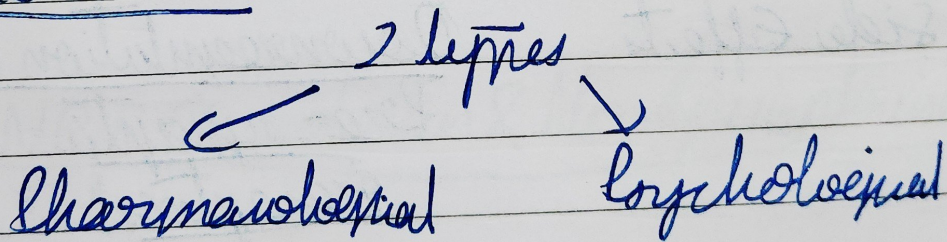 2 types
Pharmacological Psychological